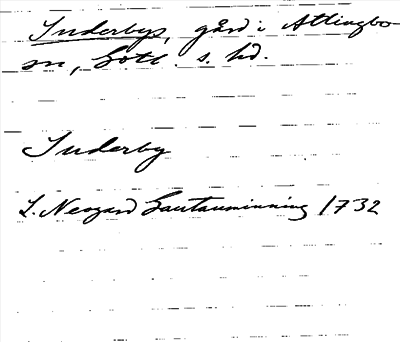 Suderbys, gård i Atlingbo
sn, Gotl. s. hd.
Suderby
L. Neogard Gautauminning 1732